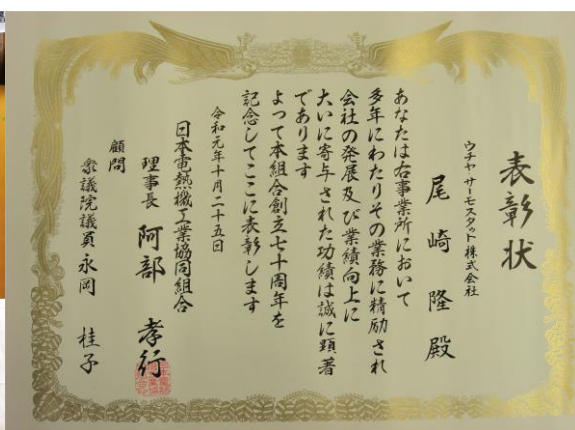 表彰状
ウチヤサーモスタット株式会社
尾崎 隆 殿
あなたは右事業所において
多年にわたりその業務に精励され
会社の発展及び業績向上に
大いに寄与された功績は誠に顕著
であります
よって本組合創立七十周年を
記念してここに表彰します
令和元年十月二十五日
日本電熱機工業協同組合
理事長 阿部 孝行
顧問
衆議院議員 永岡 桂子